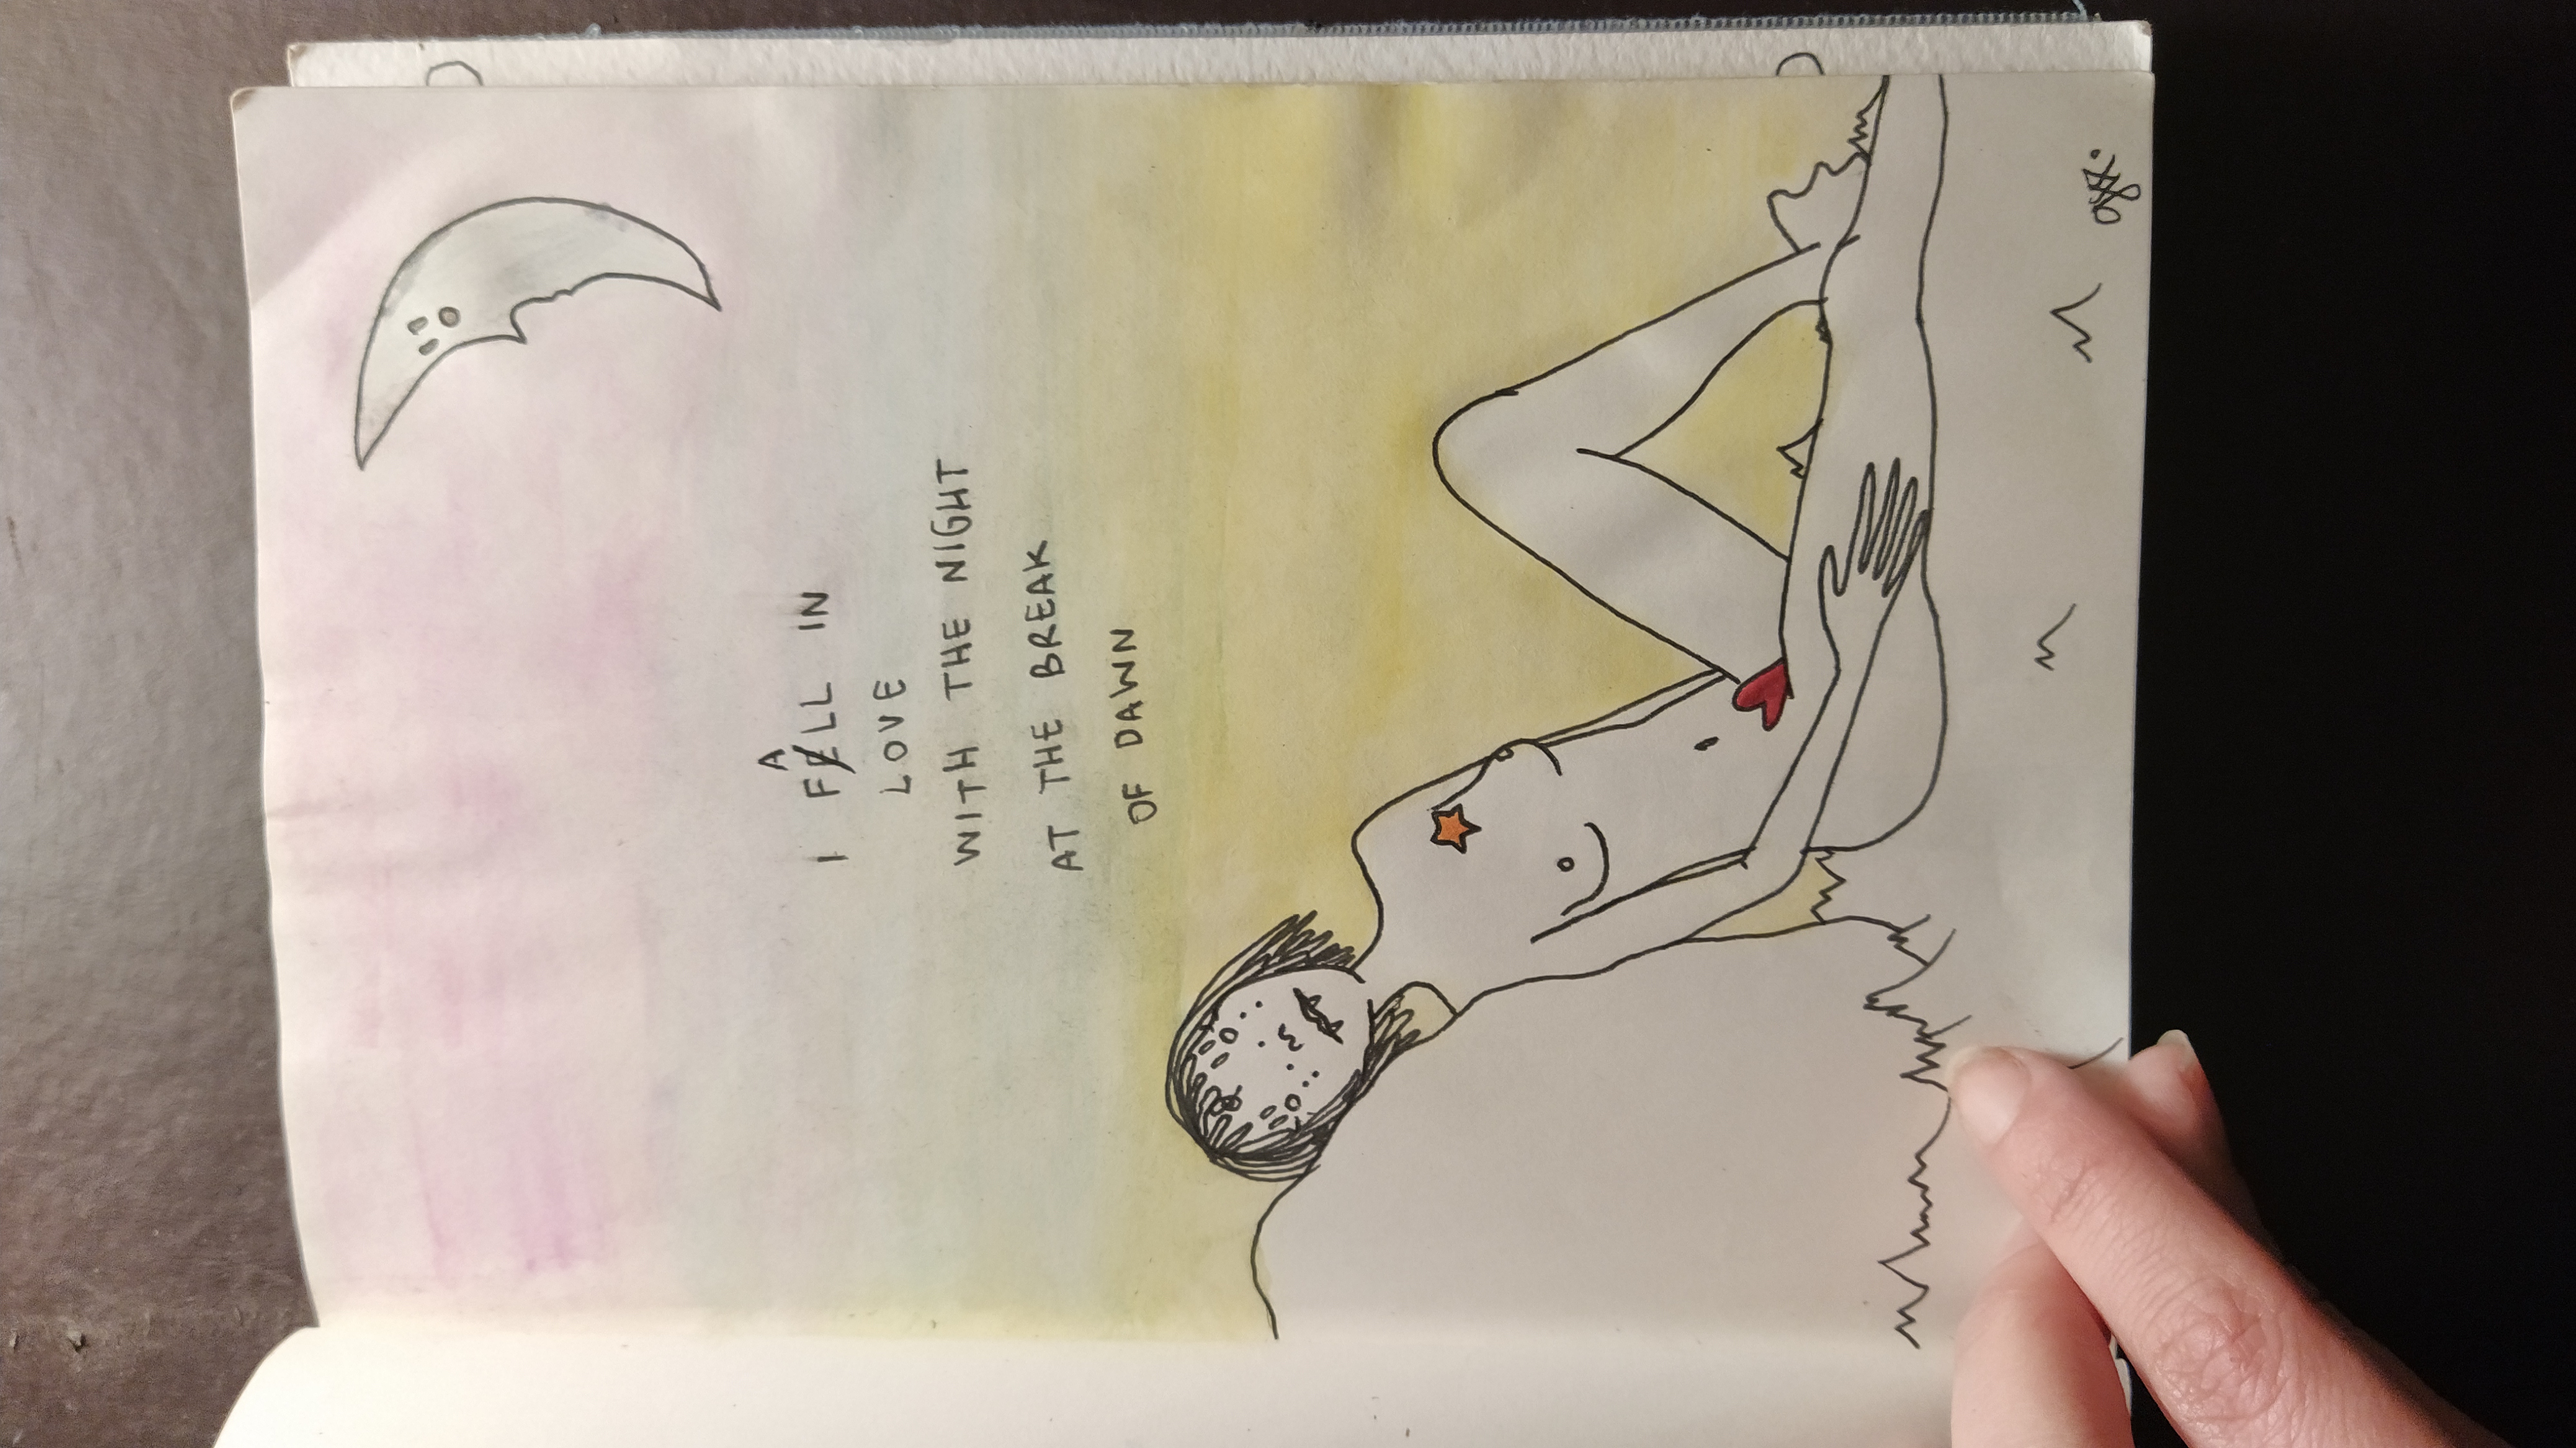 I FALL IN
LOVE
WITH THE NIGHT
AT THE BREAK
OF DAWN